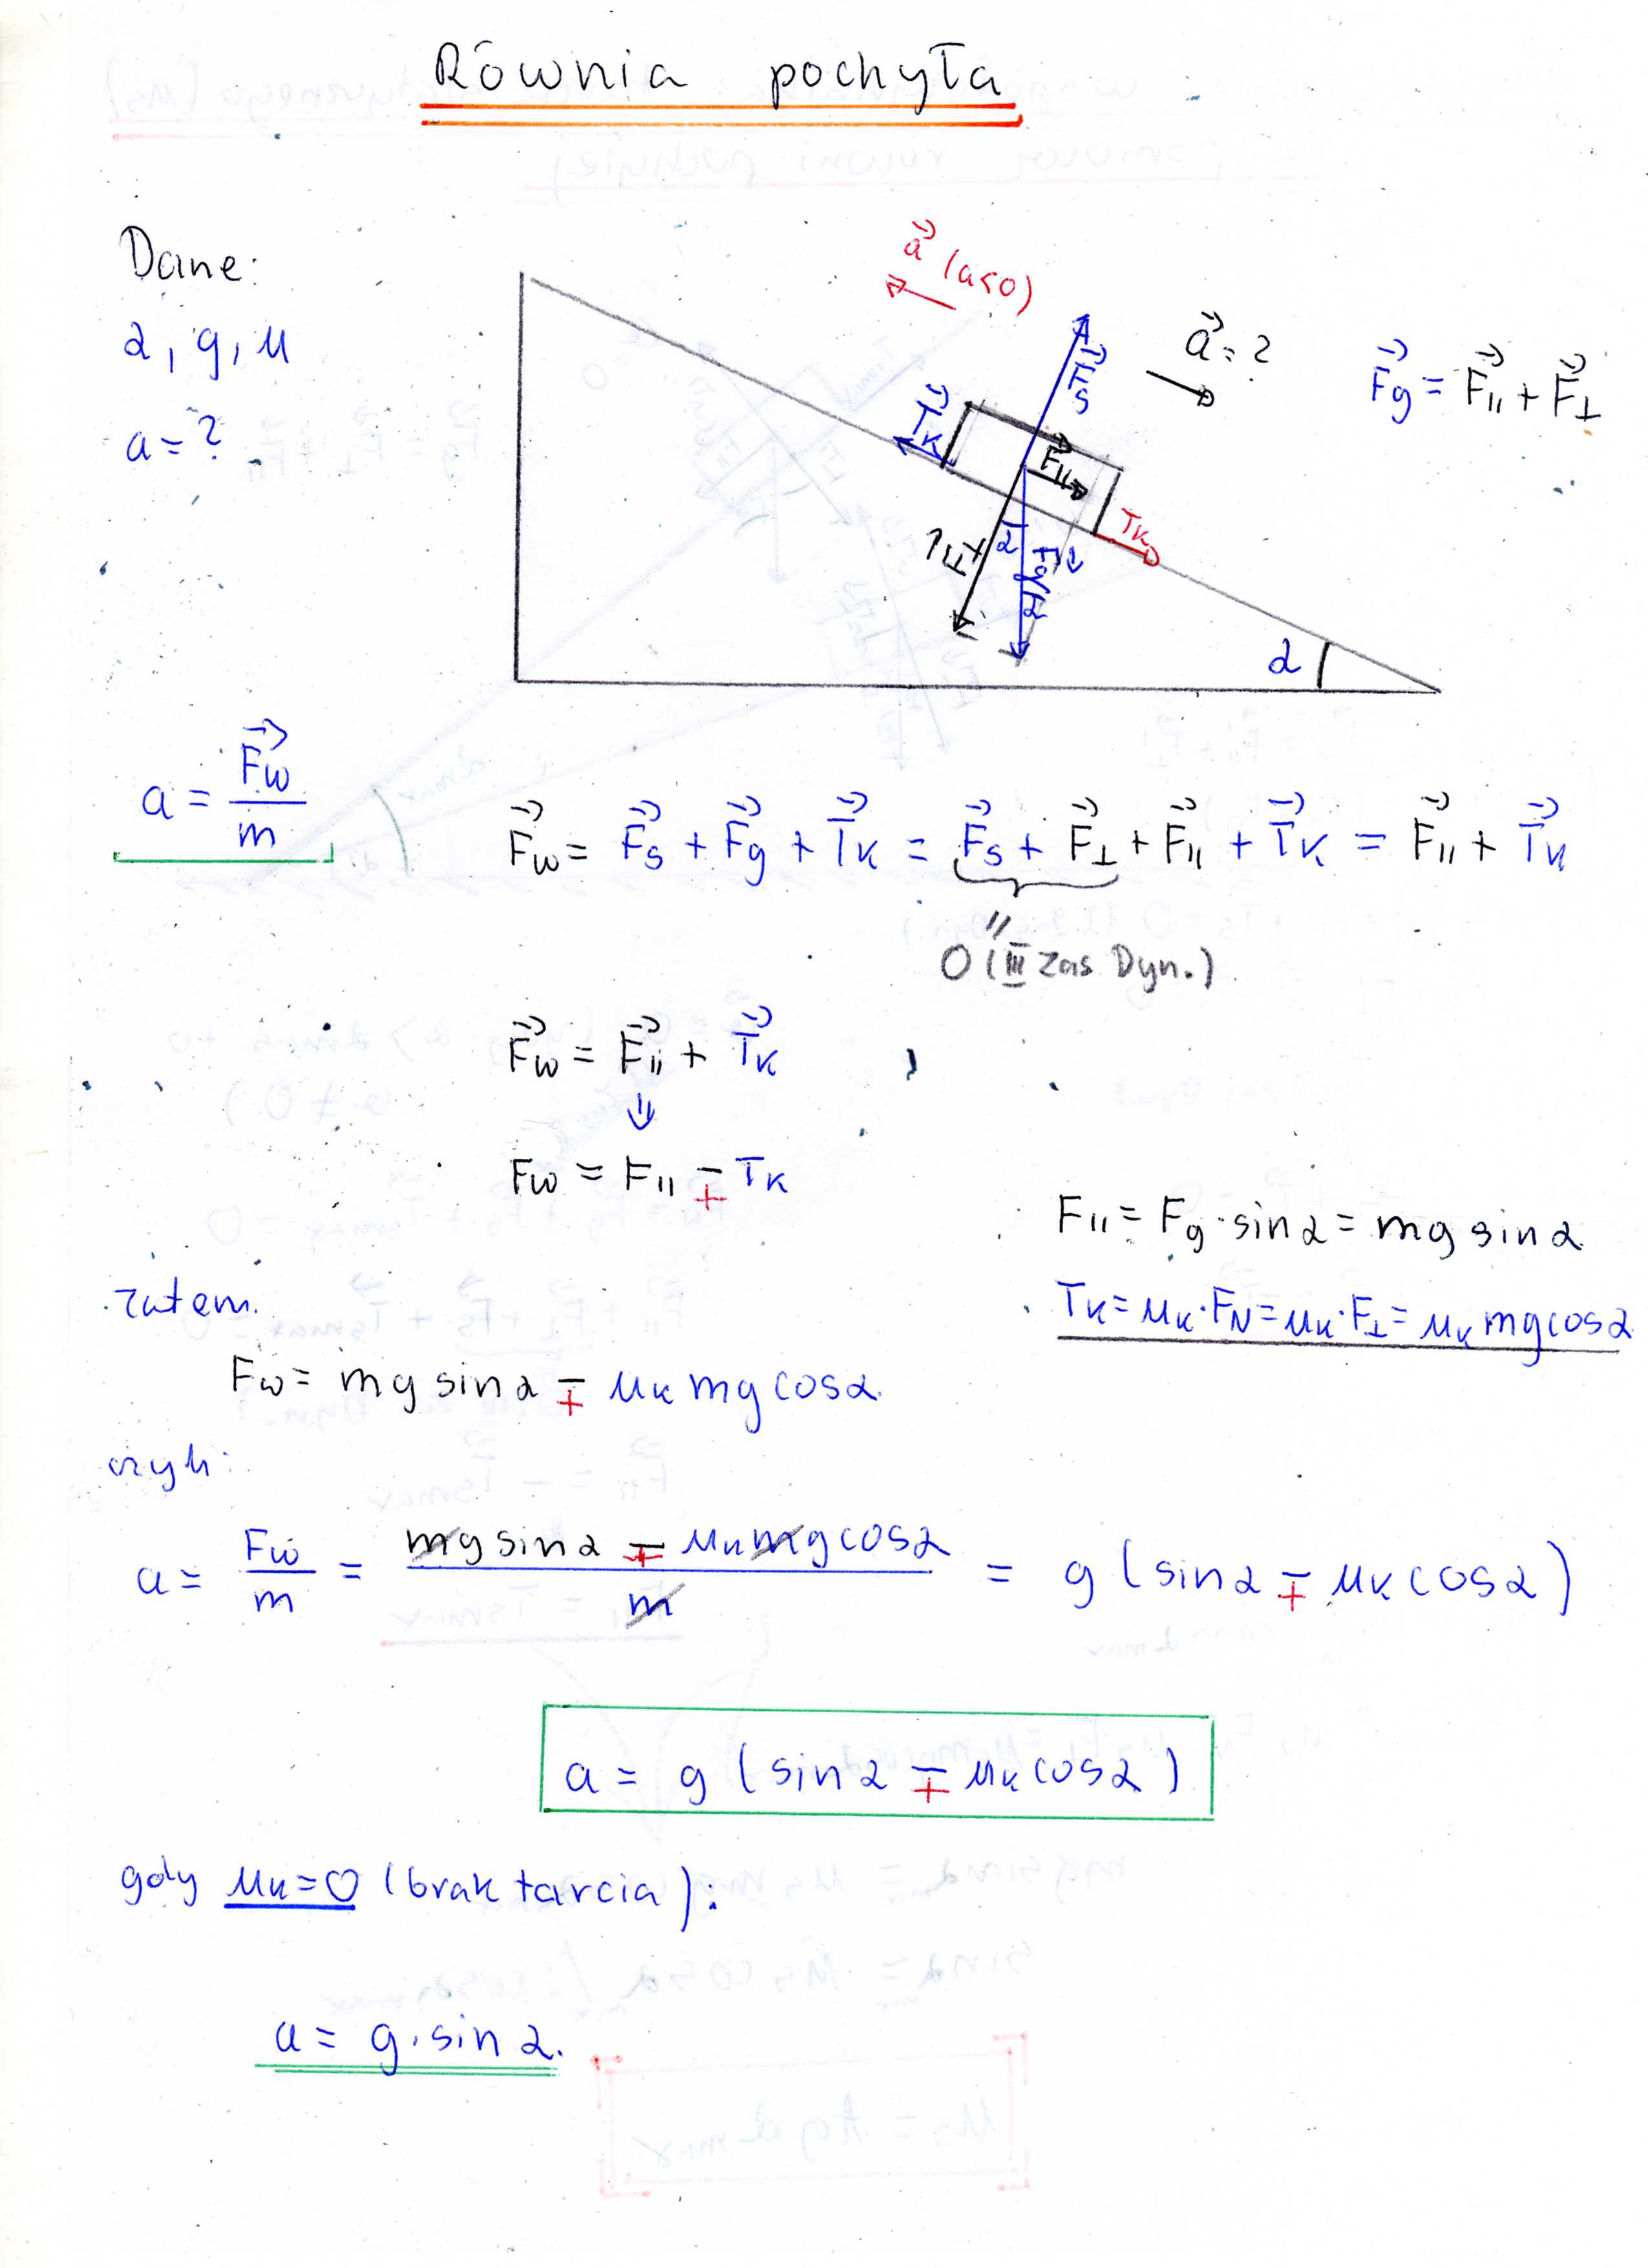 Równia pochyła
Dane:
α, g, μ
a = ?
a⃗ (a<0)
a⃗ = ?
F⃗g = F⃗∥ + F⃗⊥
F⃗s
T⃗k
F⃗∥
Tk
F⃗⊥
α
α
a = F⃗w / m
F⃗w = F⃗s + F⃗g + T⃗k = F⃗s + F⃗⊥ + F⃗∥ + T⃗k = F⃗∥ + T⃗k
0 (III zas Dyn.)
F⃗w = F⃗∥ + T⃗k
⇓
Fw = F∥ ∓ Tk
F∥ = Fg · sinα = mg sinα
Tk = μk · FN = μk · F⊥ = μk mg cosα
zatem.
Fw = mg sinα ∓ μk mg cosα.
czyli:
a = Fw / m = (mg sinα ∓ μk mg cosα) / m = g (sinα ∓ μk cosα)
a = g (sinα ∓ μk cosα)
gdy μk = 0 (brak tarcia):
a = g · sin α.